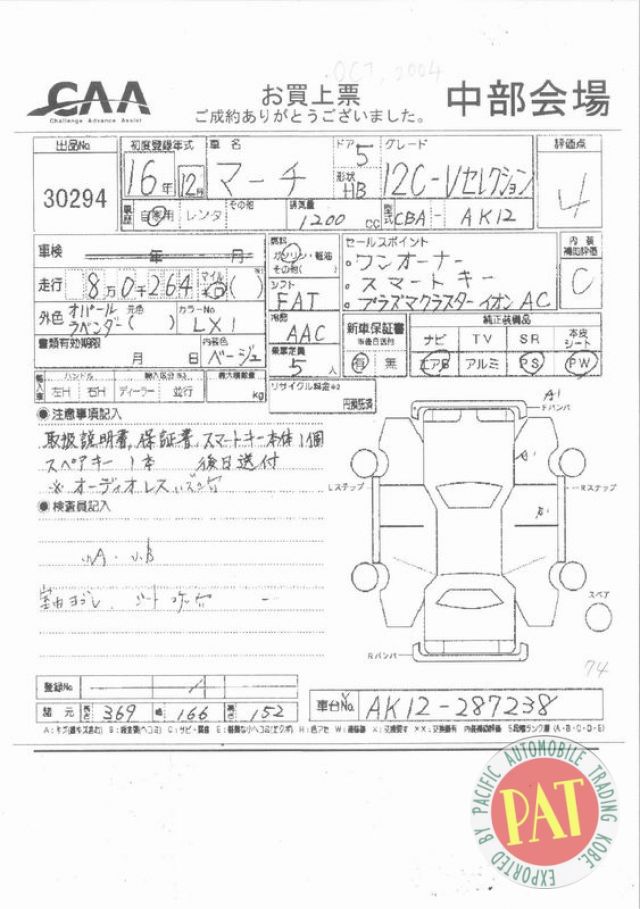 OCT, 2004
CAA
Challenge Advance Assist
お買上票
ご成約ありがとうございました。
中部会場
出品No
30294
初度登録年式
16年 12月
車名
マーチ
ドア 5
形状 HB
グレード
12C-Vセレクション
評価点
4
車歴 自家用 レンタ その他
排気量
1200 cc
型式 CBA- AK12
車検 年 月
走行 8万0千264 マイル ( )
外色 オパールラベンダー 元色 ( ) カラーNo LX1
書類有効期限 月 日
内装色 ベージュ
燃料
ガソリン・軽油
その他( )
シフト
FAT
冷房
AAC
乗車定員
5人
セールスポイント
・ワンオーナー
・スマートキー
・プラズマクラスターイオンAC
内装
補助評価
C
新車保証書
※後日送付
有 無
純正装備品
ナビ TV SR 本皮シート
エアB アルミ PS PW
輸入車 ハンドル 左H 右H 輸入区分 ディーラー 並行 最大積載量 kg
リサイクル料金
円預託済
●注意事項記入
取扱説明書、保証書、スマートキー本体1個
スペアキー1本 後日送付
※オーディオレス
●検査員記入
A・ B
Fバンパ
Lステップ
Rステップ
スペア
Rバンパ
74
登録No
諸元 長さ 369 幅 166 高さ 152
車台No AK12-287238
PACIFIC AUTOMOBILE TRADING
PAT
EXPORTED BY
KOBE.